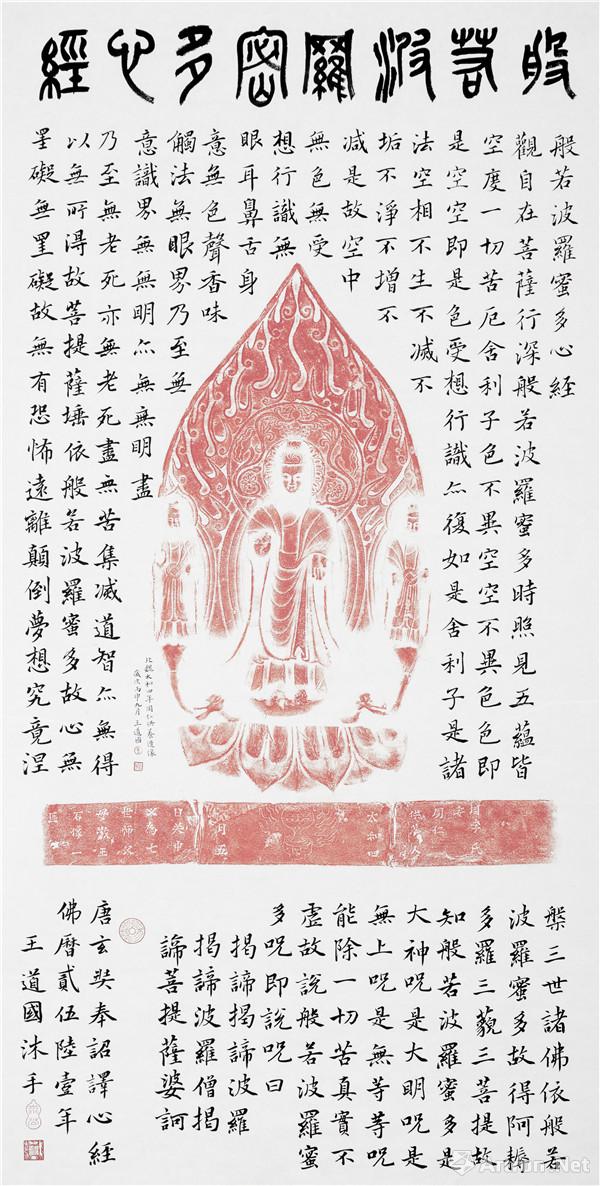 般若波羅密多心經
般若波羅蜜多心經
觀自在菩薩行深般若波羅蜜多時照見五蘊皆
空度一切苦厄舍利子色不異空空不異色色即
是空空即是色受想行識亦復如是舍利子是諸
法空相不生不滅不
垢不淨不增不
減是故空中
無色無受
想行識無
眼耳鼻舌身
意無色聲香味
觸法無眼界乃至無
意識界無無明亦無無明盡
乃至無老死亦無老死盡無苦集滅道智亦無得
以無所得故菩提薩埵依般若波羅蜜多故心無
罣礙無罣礙故無有恐怖遠離顛倒夢想究竟涅
北魏太和四年周仁洪養造像
歲次丙申九月王道國
周李氏
周仁
太和四
月五
為七
石像一
區
槃三世諸佛依般若
波羅蜜多故得阿耨
多羅三藐三菩提故
知般若波羅蜜多是
大神咒是大明咒是
無上咒是無等等咒
能除一切苦真實不
虛故說般若波羅蜜
多咒即說咒曰
揭諦揭諦波羅
揭諦波羅僧揭
諦菩提薩婆訶
唐玄奘奉詔譯心經
佛曆貳伍陸壹年
王道國沐手
Artron.Net